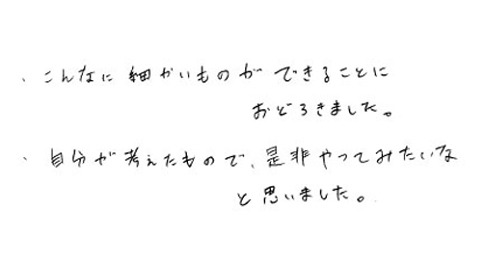 ・こんなに細かいものができることに
おどろきました。
・自分が考えたもので、是非やってみたいな
と思いました。